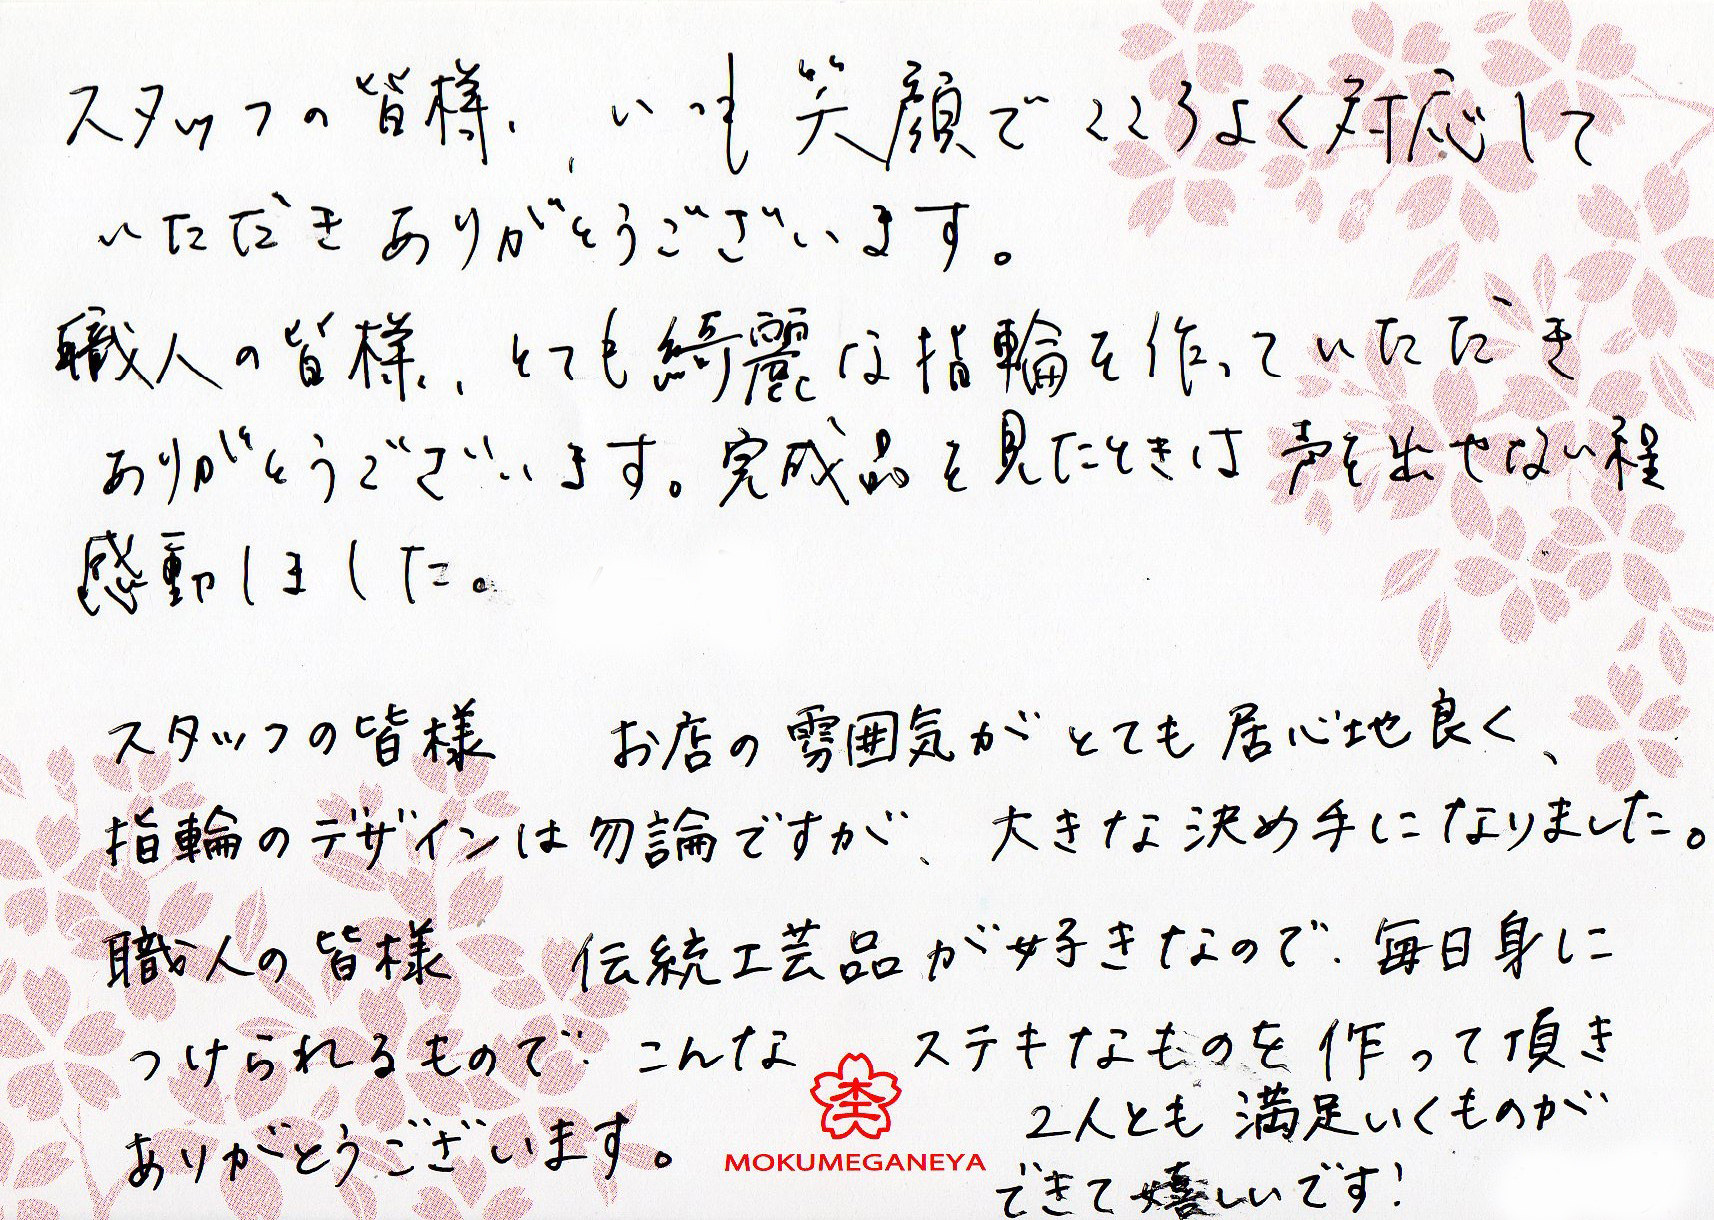 スタッフの皆様、いつも笑顔でこころよく対応して
いただきありがとうございます。
職人の皆様、とても綺麗な指輪を作っていただき
ありがとうございます。完成品を見たときは声を出せない程
感動しました。
スタッフの皆様 お店の雰囲気がとても居心地良く、
指輪のデザインは勿論ですが、大きな決め手になりました。
職人の皆様 伝統工芸品が好きなので、毎日身に
つけられるもので、こんな ステキなものを作って頂き
ありがとうございます。
2人とも満足いくものが
できて嬉しいです!
MOKUMEGANEYA